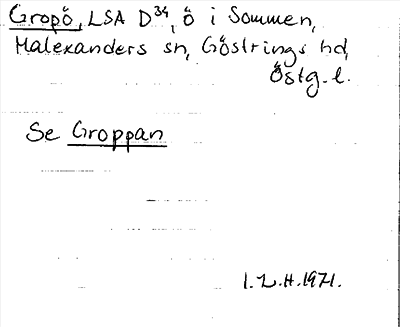 Gropö, LSA D³⁴, ö i Sommen,
Malexanders sn, Göstrings hd,
Östg. l.
Se Groppan
I.L.H.1971.